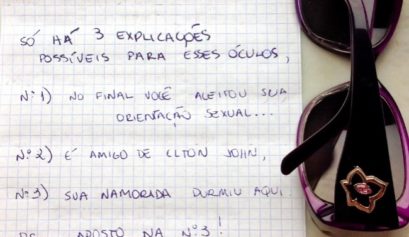 SÓ HÁ 3 EXPLICAÇÕES
POSSÍVEIS PARA ESSES ÓCULOS,
Nº1) NO FINAL VOCÊ ACEITOU SUA
ORIENTAÇÃO SEXUAL...
Nº2) É AMIGO DE ELTON JOHN,
Nº3) SUA NAMORADA DORMIU AQUI.
APOSTO NA Nº3!